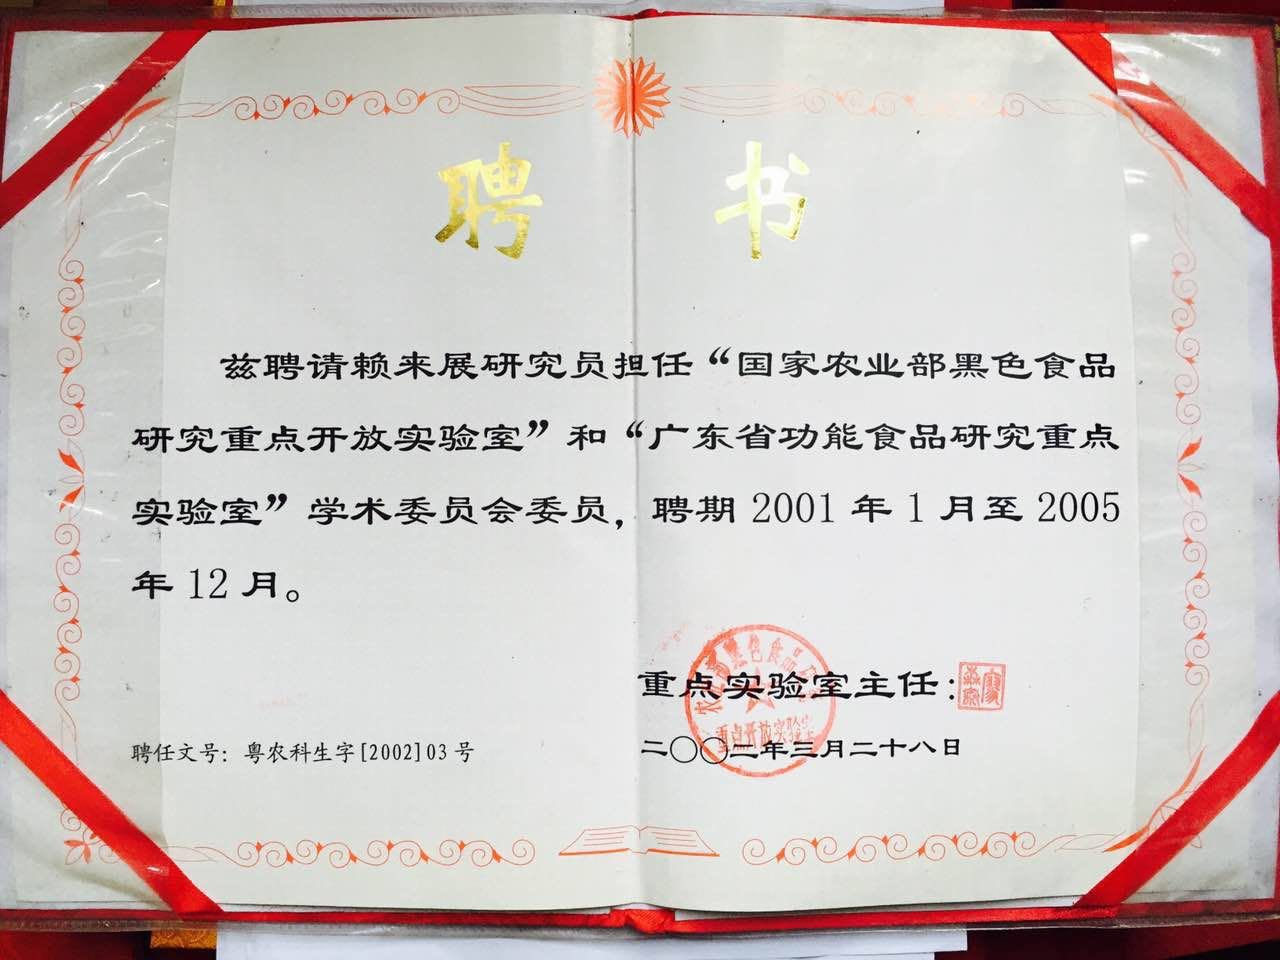 聘书
兹聘请赖来展研究员担任“国家农业部黑色食品
研究重点开放实验室”和“广东省功能食品研究重点
实验室”学术委员会委员，聘期 2001 年 1 月至 2005
年 12 月。
重点实验室主任：
聘任文号：粤农科生字[2002]03 号
二〇〇二年三月二十八日
重点开放实验室